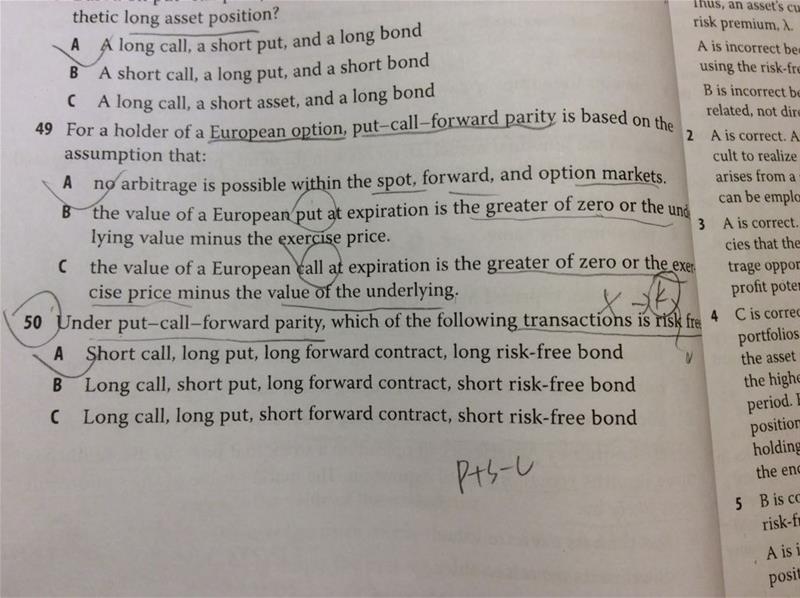 thetic long asset position?
A A long call, a short put, and a long bond
B A short call, a long put, and a short bond
C A long call, a short asset, and a long bond
49 For a holder of a European option, put–call–forward parity is based on the
assumption that:
A no arbitrage is possible within the spot, forward, and option markets.
B the value of a European put at expiration is the greater of zero or the und
lying value minus the exercise price.
C the value of a European call at expiration is the greater of zero or the exer-
cise price minus the value of the underlying.
50 Under put–call–forward parity, which of the following transactions is risk free
A Short call, long put, long forward contract, long risk-free bond
B Long call, short put, long forward contract, short risk-free bond
C Long call, long put, short forward contract, short risk-free bond
P+S-C
Thus, an asset's cu
risk premium, λ.
A is incorrect bec
using the risk-fre
B is incorrect be
related, not dire
2 A is correct. A
cult to realize
arises from a
can be emplo
3 A is correct.
cies that the
trage oppor
profit poter
4 C is correc
portfolios
the asset
the highe
period. I
position
holding
the enc
5 B is co
risk-fr
A is i
posit